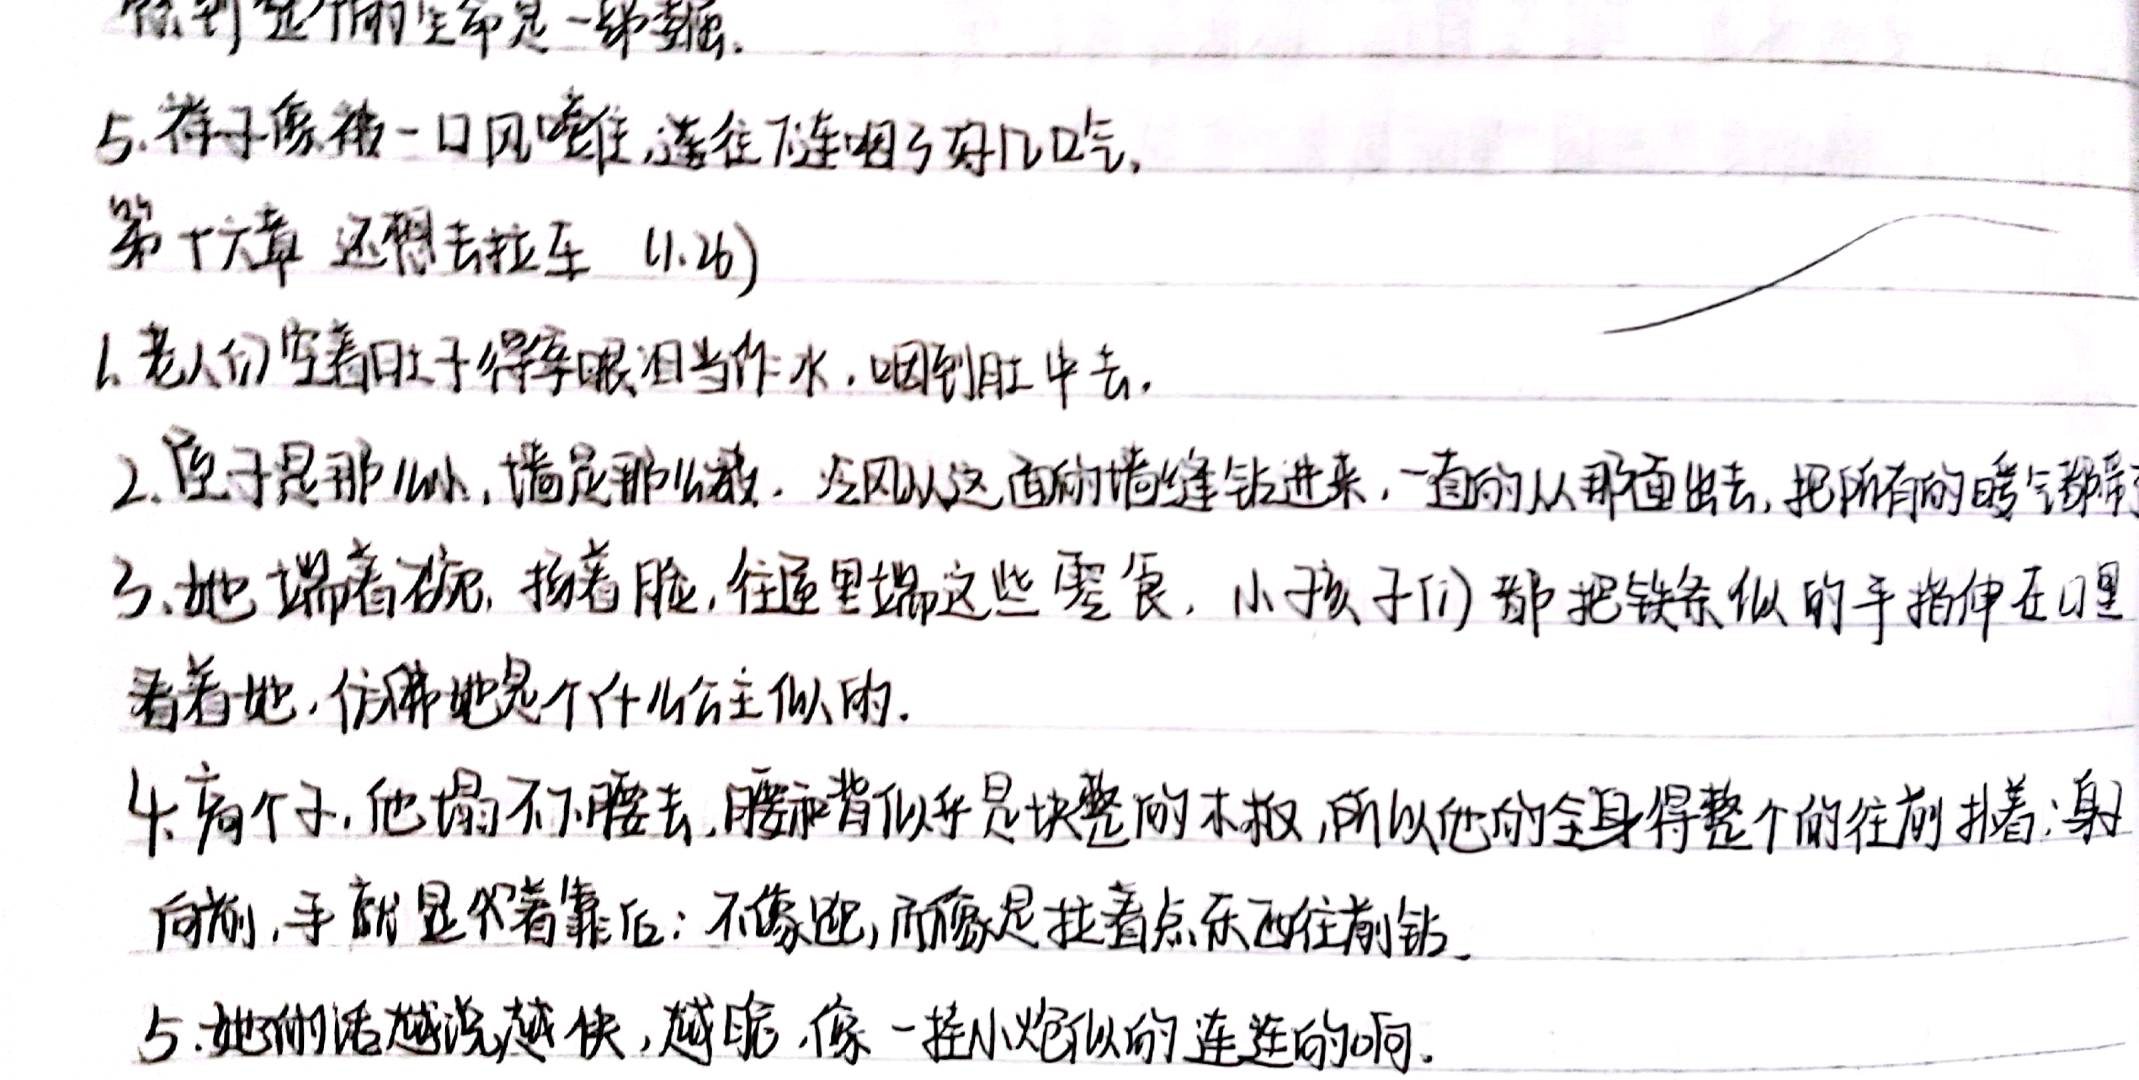 到这个的生命是一种
5.祥子像被一口风噎住,连往下连咽了好几口气.
第十六章 还想去拉车 (1.26)
1.老人们空着肚子得拿眼泪当作水,咽到肚中去.
2.屋子是那么小,墙是那么破.冷风从这面的墙缝钻进来,一直的从那面出去,把所有的暖气都带了
3.她端着碗,扬着脸,往屋里端这些零食,小孩子们都把铁条似的手指伸在口里
看着她,仿佛她是个什么公主似的.
4.高个子,他塌不下腰去,腰和背似乎是块整的木板,所以他的全身得整个的往前扑着;身子
向前,手就显代着靠后:不像跑,而像是拉着点东西往前钻.
5.她的话越说越快,越脆,像一挂小炮似的连连的响.